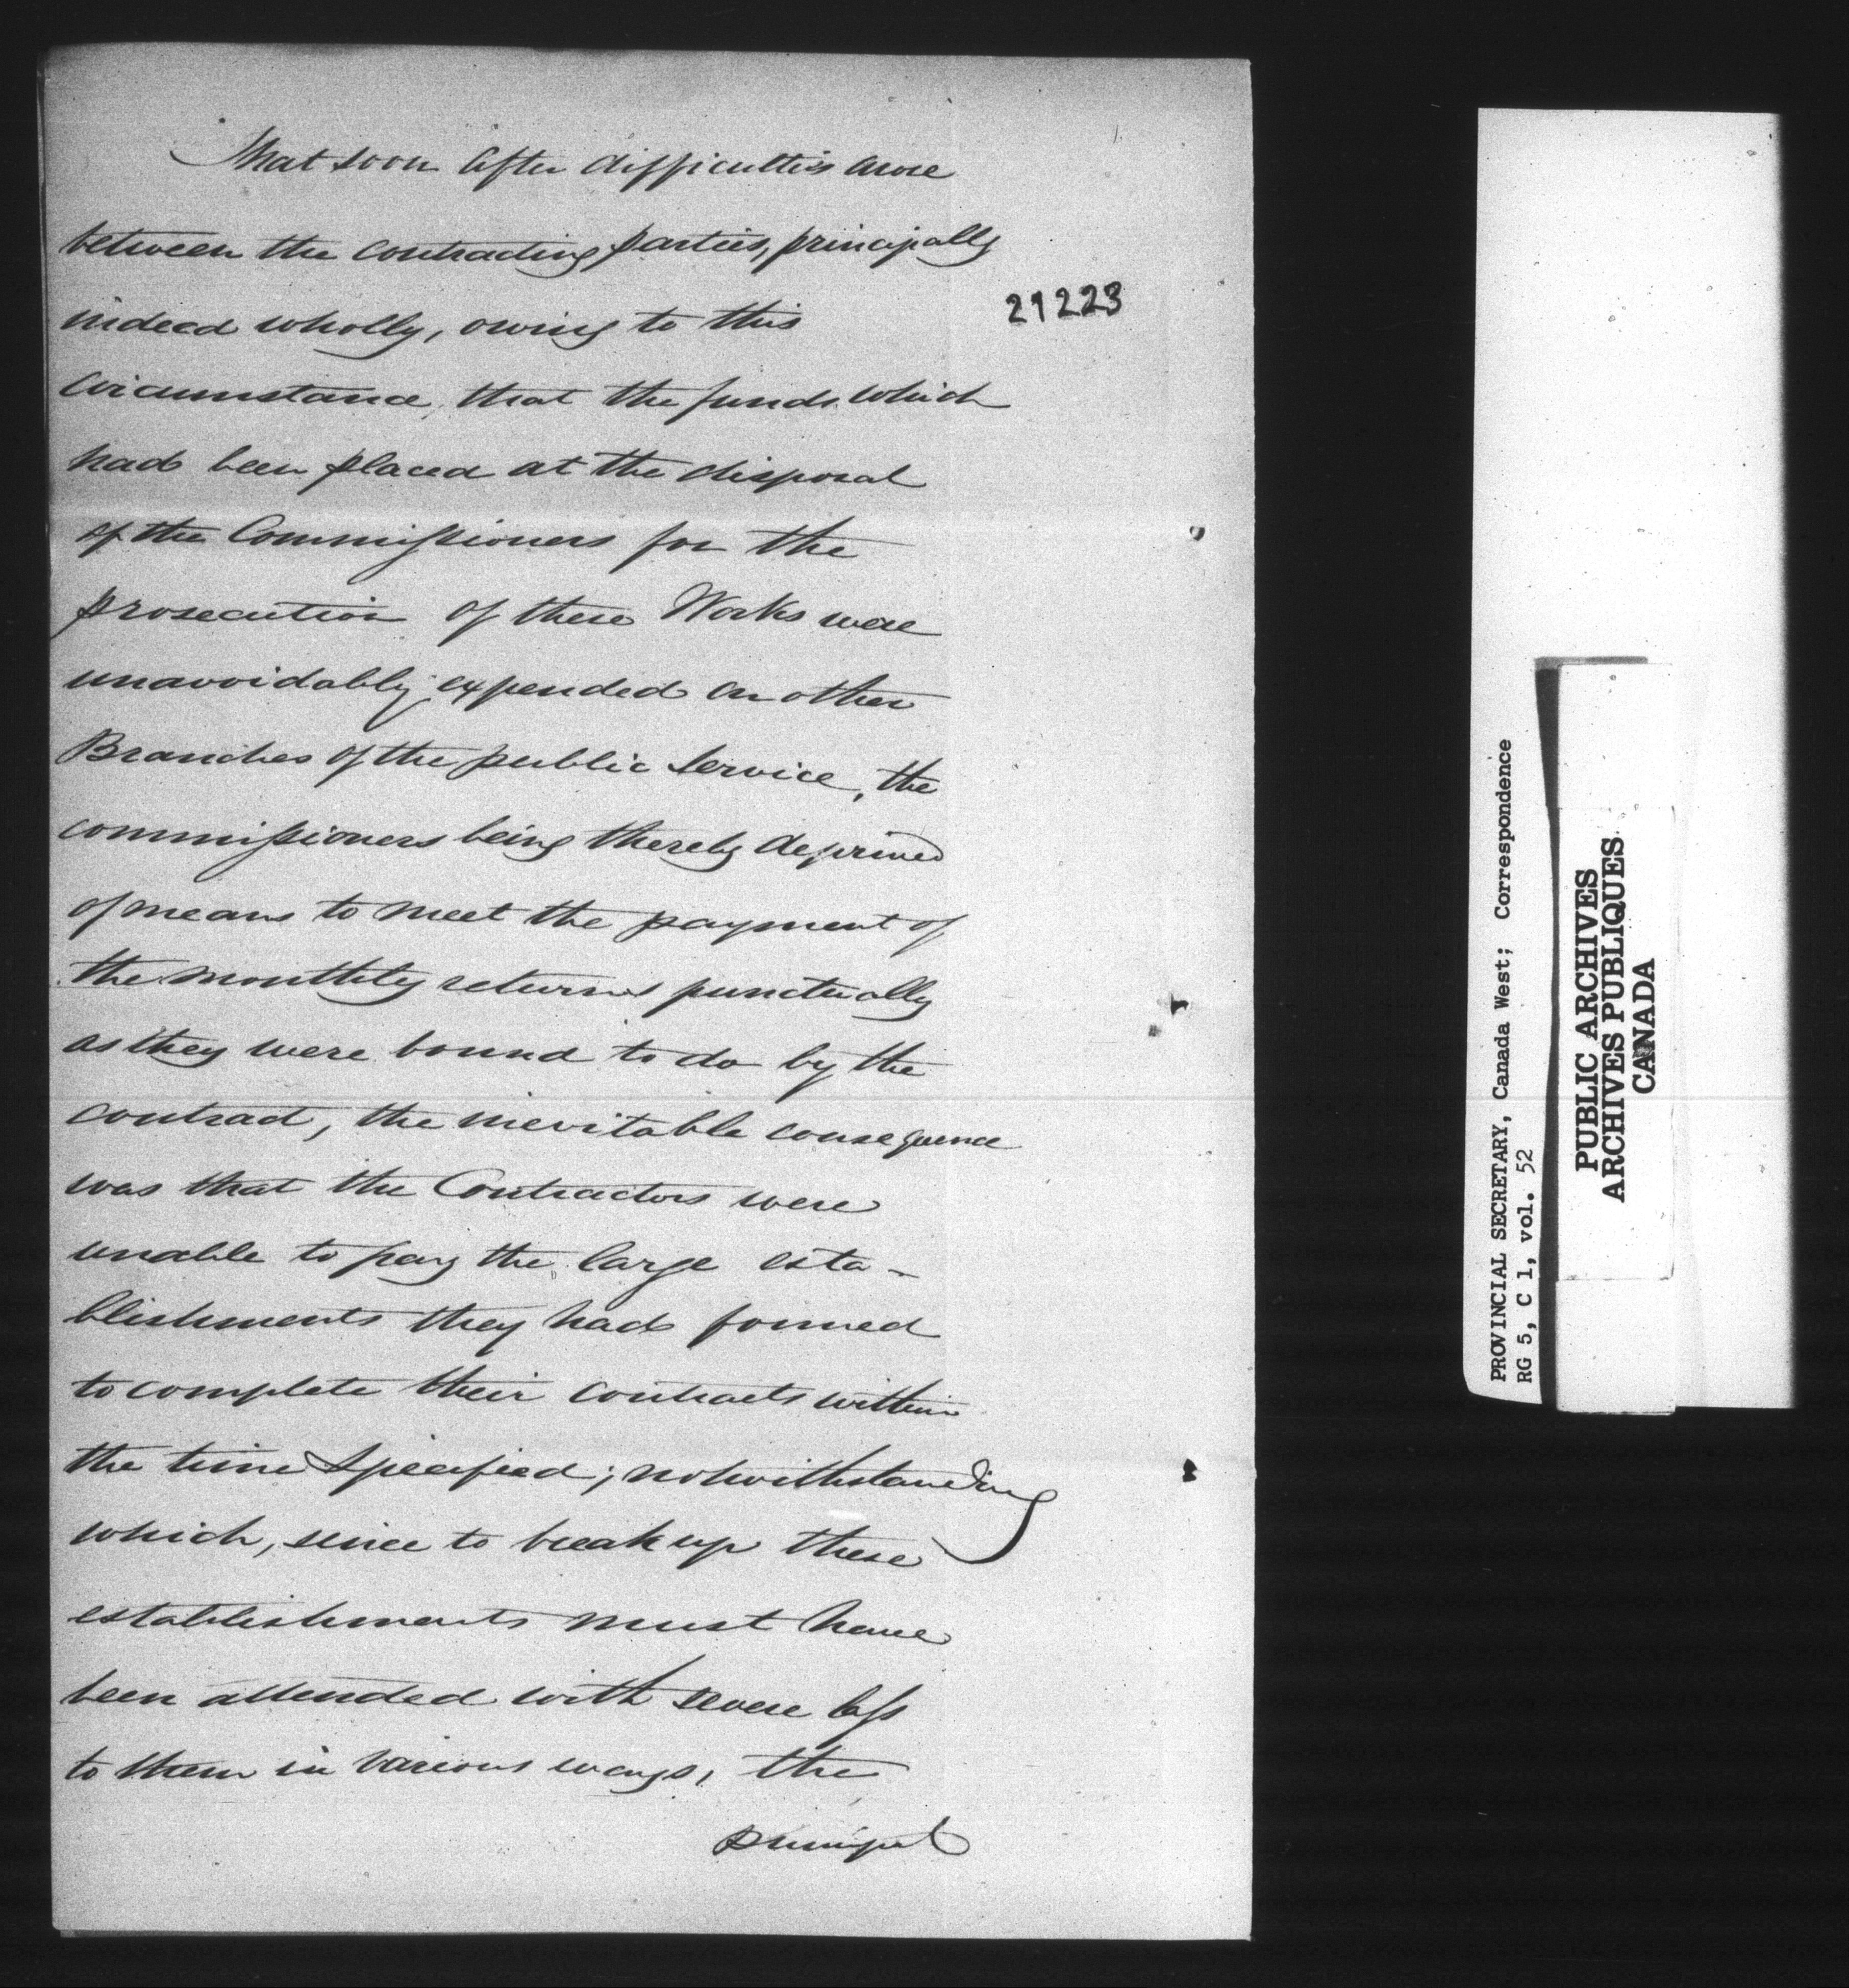 That soon after difficulties arose
between the contracting parties, principally
indeed wholly, owing to this
21223
circumstance, that the funds which
had been placed at the disposal
of the Commissioners for the
prosecution of these Works were
unavoidably expended on other
Branches of the public Service, the
commissioners being thereby deprived
of means to meet the payment of
the monthly returns punctually
as they were bound to do by the
contract, the inevitable consequence
was that the Contractors were
unable to pay the large esta-
blishments they had formed
to complete their contracts within
the time specified; notwithstanding
which, since to break up these
establishments must have
been attended with severe loss
to them in various ways, the
principal
PROVINCIAL SECRETARY, Canada West; Correspondence
RG 5, C 1, vol. 52
PUBLIC ARCHIVES
ARCHIVES PUBLIQUES
CANADA